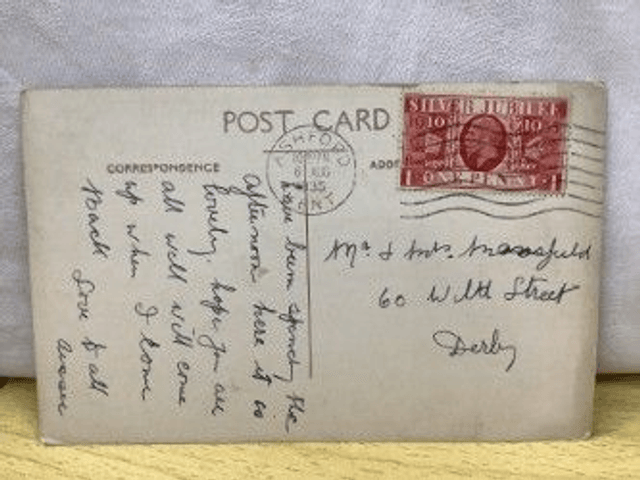 POST CARD
CORRESPONDENCE
ADD
ASHFORD
6 AUG
35
KENT
SILVER JUBILEE
1910
1 ONE PENNY 1
Mr & Mrs Mansfield
60 With Street
Derby
Have been spending the
afternoon here it is
lovely, hope you are
all well will come
up when I come
back Love to all